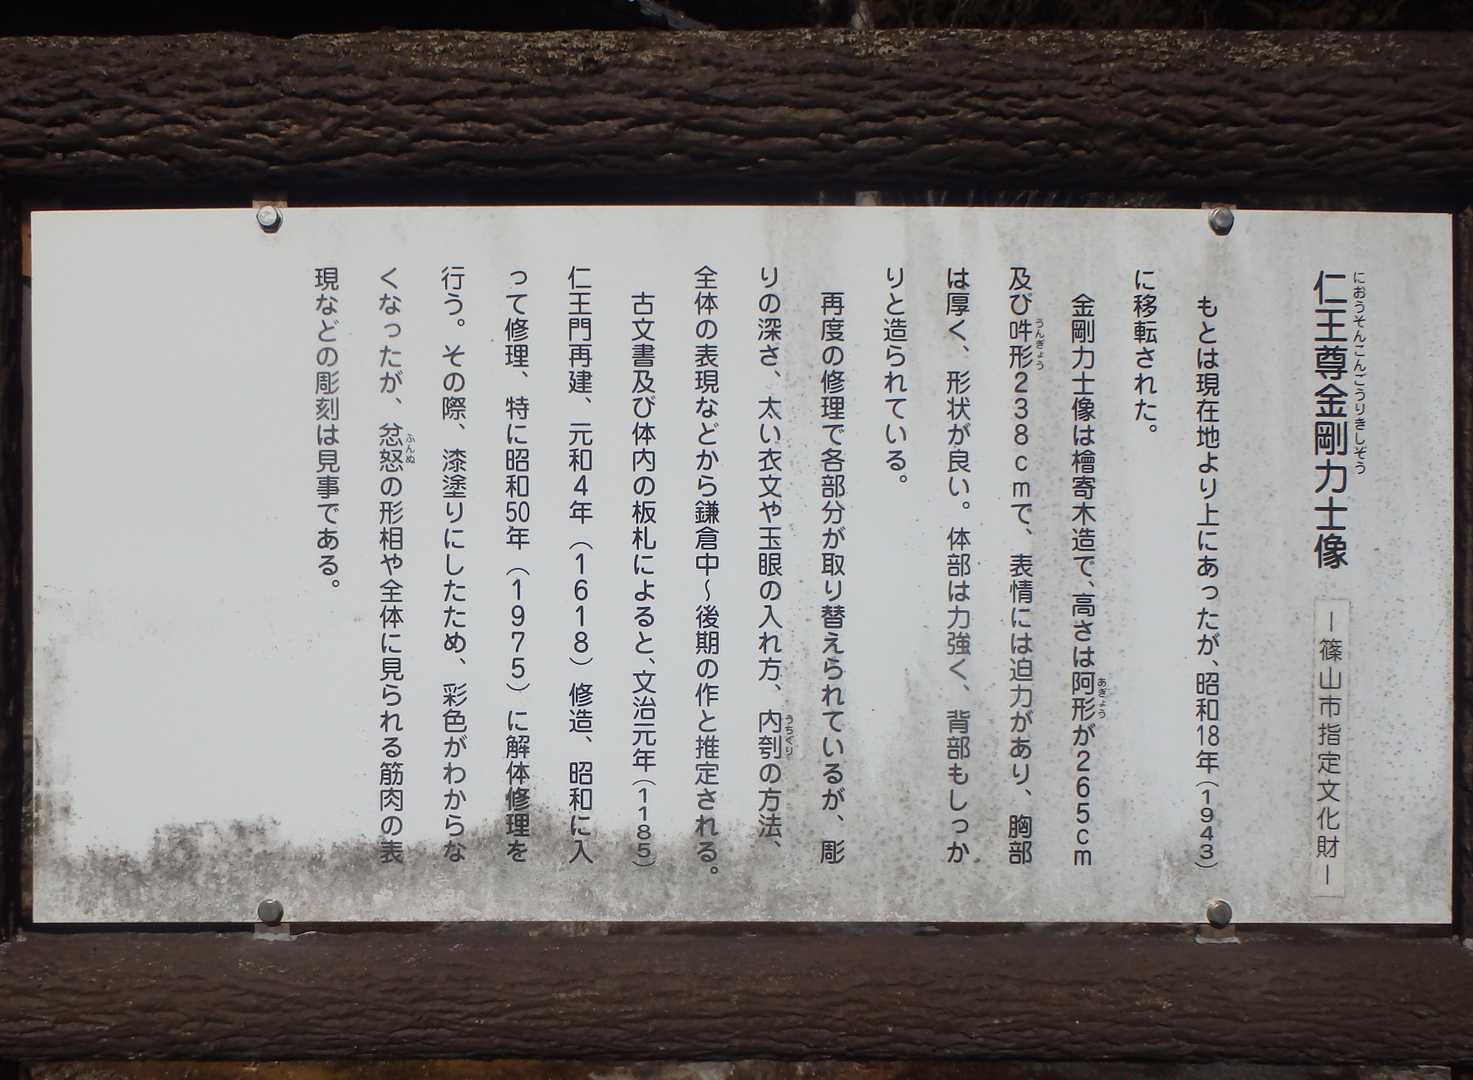 仁王尊金剛力士像 ー篠山市指定文化財ー
におうそんこんごうりきしぞう
もとは現在地より上にあったが、昭和18年（1943）
に移転された。
金剛力士像は檜寄木造で、高さは阿形が265cm
あぎょう
及び吽形238cmで、表情には迫力があり、胸部
うんぎょう
は厚く、形状が良い。体部は力強く、背部もしっか
りと造られている。
再度の修理で各部分が取り替えられているが、彫
りの深さ、太い衣文や玉眼の入れ方、内刳の方法、
うちぐり
全体の表現などから鎌倉中～後期の作と推定される。
古文書及び体内の板札によると、文治元年（1185）
仁王門再建、元和4年（1618）修造、昭和に入
って修理、特に昭和50年（1975）に解体修理を
行う。その際、漆塗りにしたため、彩色がわからな
くなったが、忿怒の形相や全体に見られる筋肉の表
ふんぬ
現などの彫刻は見事である。